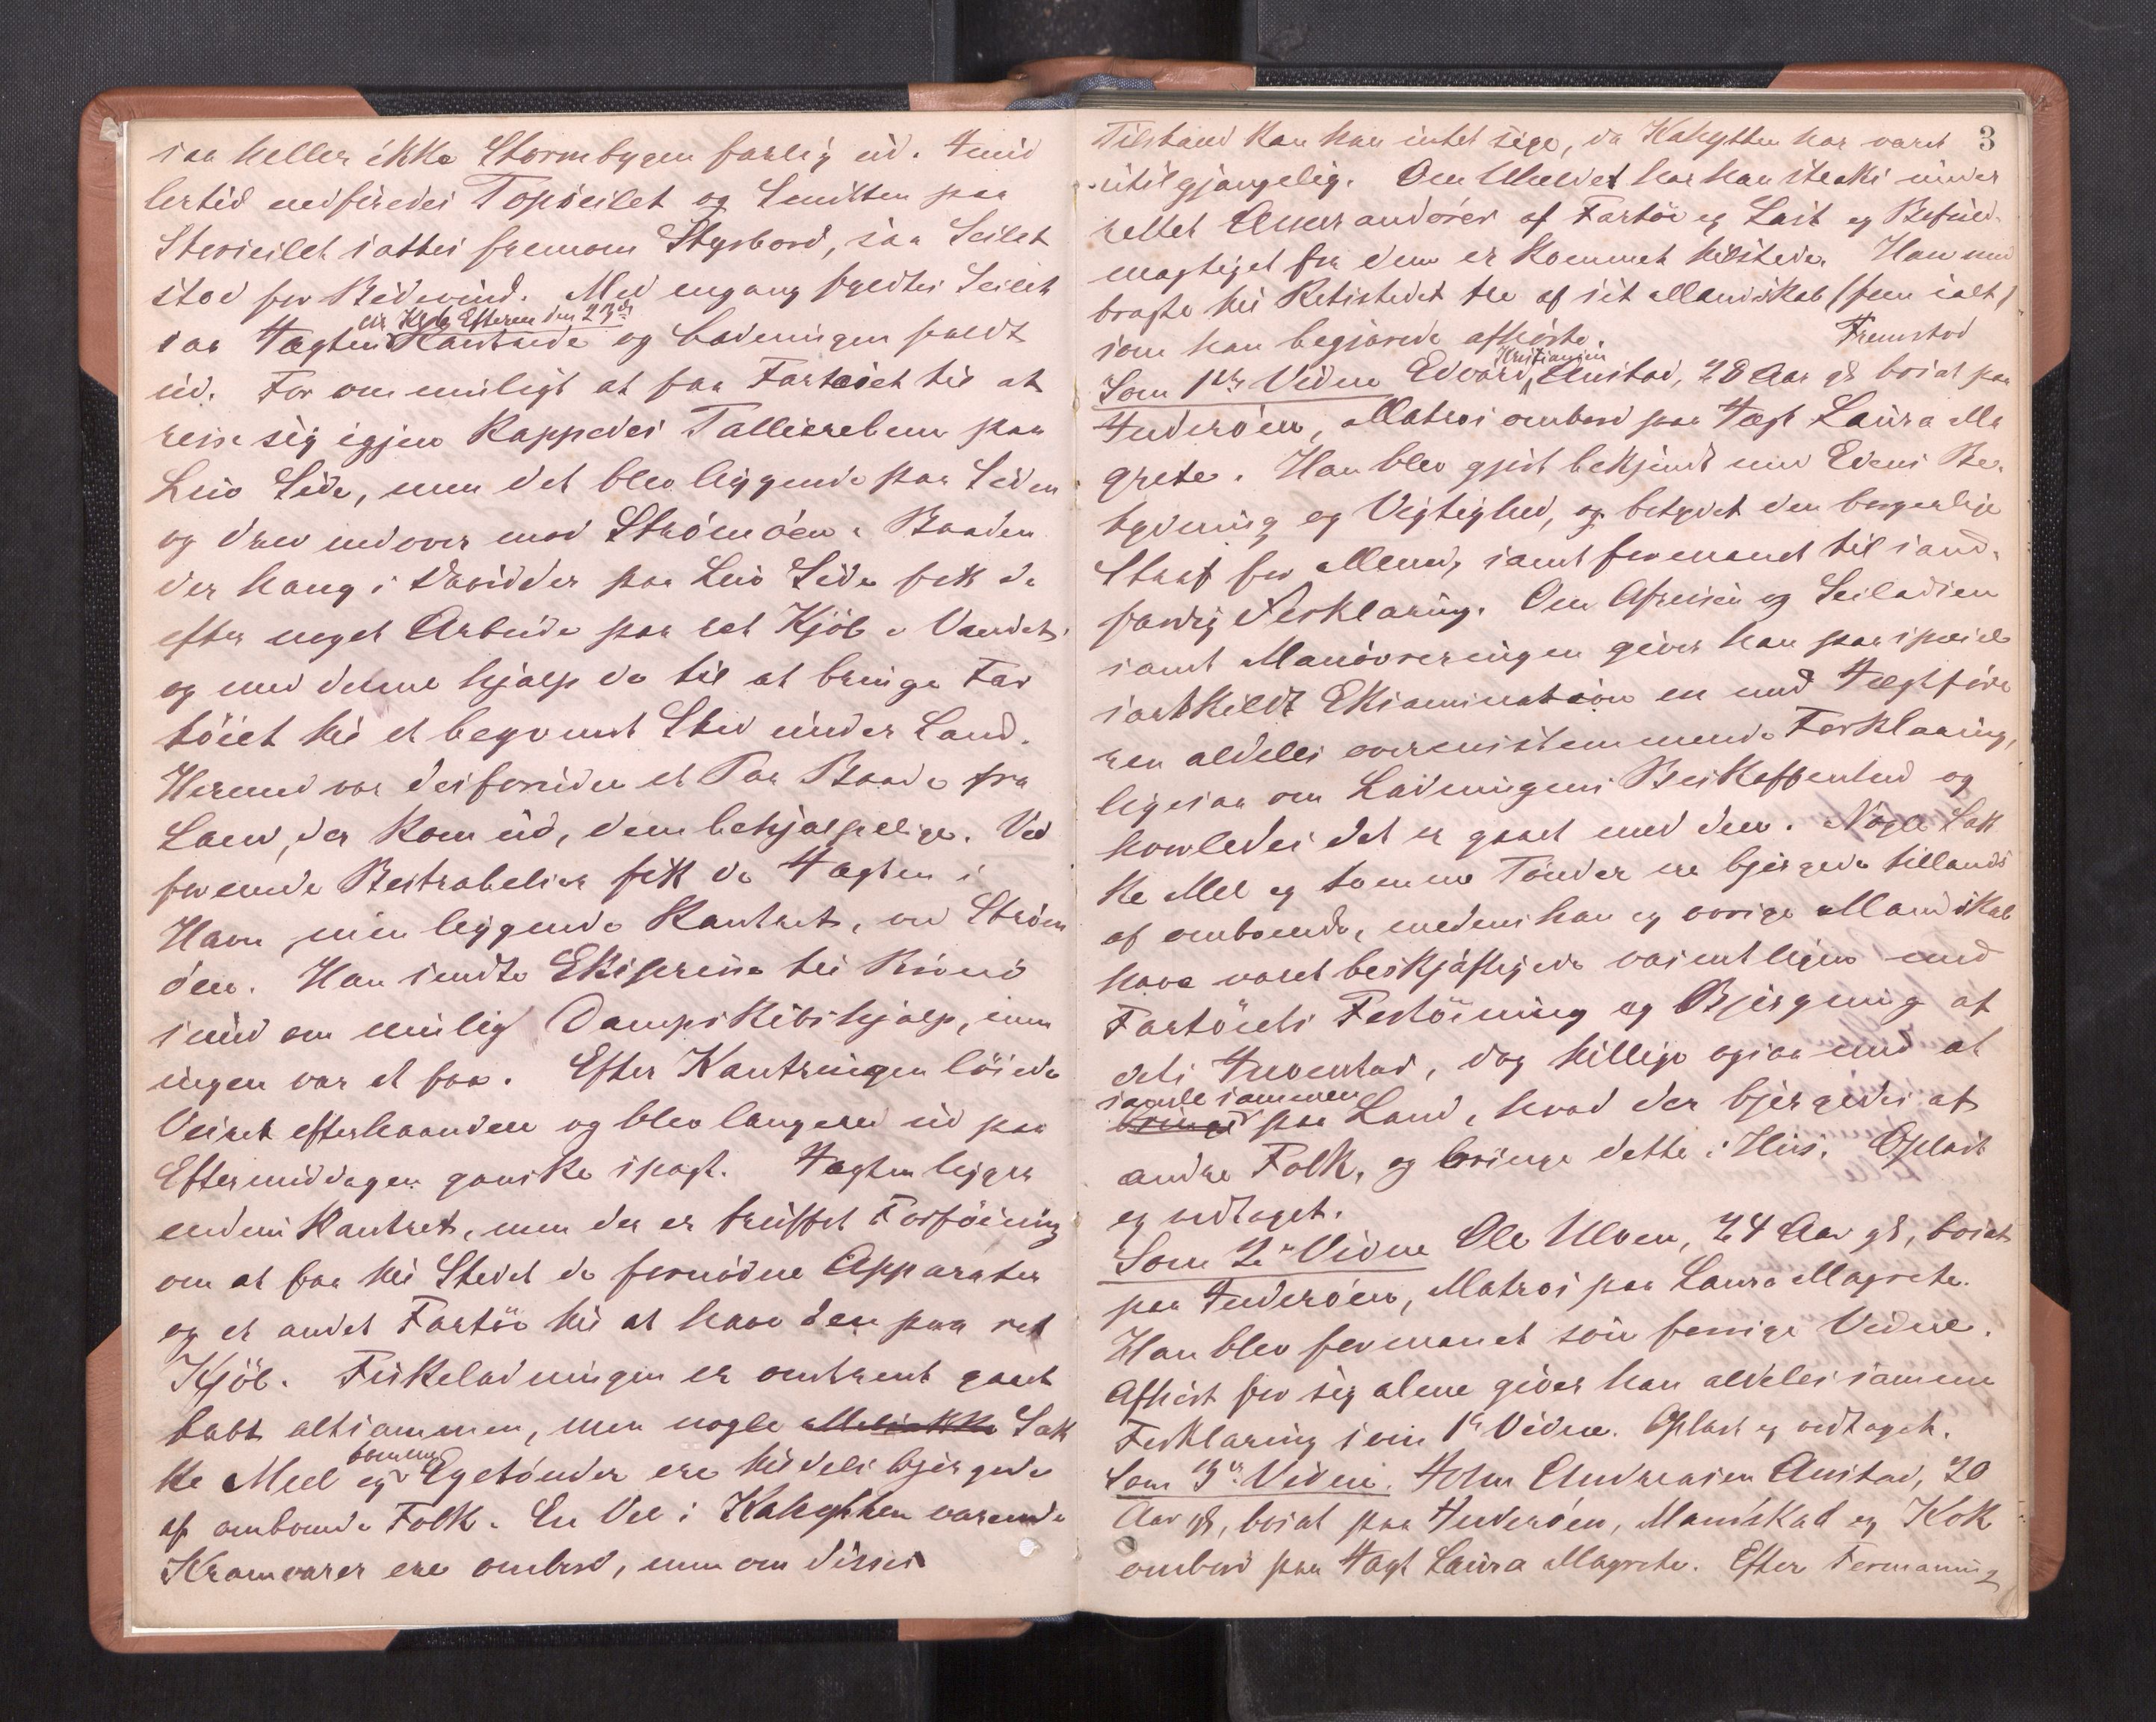 saa heller ikke Stormbygen farlig ud. Imid
lertid nedfiredes Topseilet og Smitten paa
Storseilet sattes fremom Styrbord, saa Seilet
stod for Bidevind. Med engang fyldtes Seilet
cir Kl 6 Efterm den 23de
saa Jagten kantrede og Ladningen faldt
ud. For om muligt at faa Fartøiet til at
reise sig igjen kappedes Talliereberne paa
Luv Side, men det blev liggende paa Siden
og drev indover mod Strömöen. Baaden
der hang i Davidder paa Luv Side fik de
efter noget Arbeide paa ret Kjöl i Vandet
og med denne hjalp de til at bringe Far
töiet til et beqvemt Sted under Land.
Hermed var desforuden et Par Baade fra
Land, der kom ud, dem behjælpelige. Ved
forenede Bestrabelser fik de Jagten i
Havn, men liggende kantret, ved Ström
öen. Han sendte Ekspresse til Brönö
sund om mulig Dampskibshjælp, men
ingen var at faa. Efter Kantringen löiede
Veiret efterhaanden og blev langere ud paa
Eftermiddagen ganske spagt. Jagten ligger
endnu kantret, men der er truffet Forföining
om at faa til Stedet de fornödne Apparater
og et andet Fartöi til at have den paa ret
Kjöl. Fiskeladningen er omtrent gaaet
tabt altsammen, men nogle Melsække Sak
tomme
ke Meel og Egetönder ere tildels bjergede
af omboende Folk. En Del i Kahytten varende
Kramvarer ere ombord, men om disses
3
Tilstand kan han intet sige, da Kahytten har varet
utilgjængelig. Om Uheldet har han straks under
rettet Assurandörer af Fartöi og Last og Befuld-
mægtiget fra dem er kommet tilstede. Han med
bragte til Retsstedet tre af sit Mandskab (fem ialt)
som han begjærede afhörte. Fremstod
Kristiansen
Som 1ste Vidne Edvard Anstad, 28 Aar gl. bosat paa
Inderöen, Matros ombord paa Jagt Laura Ma
grete. Han blev gjort bekjendt med Edens Be-
tydning og Vigtighed, og betydet den borgerlige
Straf for Mened, samt formanet til sand-
færdig Forklaring. Om Afreisen og Seiladsen
samt Manövreringen giver han paa speciel
særskildt Eksamination en med Jagtföre
ren aldeles overensstemmende Forklaring,
ligesaa om Ladningens Beskaffenhed og
hvorledes det er gaaet med den. Nogle Sak
ke Mel og tomme Tönder ere bjergede tillands
af omboende, medens han og övrige Mandskab
have varet beskjæftigede vasentligen med
Fartöiets Fortöining og Bjergning af
dets Inventar, dog tillige ogsaa med at
samle sammen
bringe paa Land, hvad der bjergedes af
andre Folk, og bringe dette i Hus. Oplæst
og vedtaget.
Som 2et Vidne Ole Ulven, 24 Aar gl, bosat
paa Inderöen, Matros paa Laura Magrete.
Han blev formanet som forrige Vidne.
Afhört for sig alene giver han aldeles samme
Forklaring som 1ste Vidne. Oplæst og vedtaget.
Som 3de Vidne. John Andreasen Anstad, 20
Aar gl, bosat paa Inderöen, Mandskab og Kok
ombord paa Jagt Laura Magrete. Efter Formaning